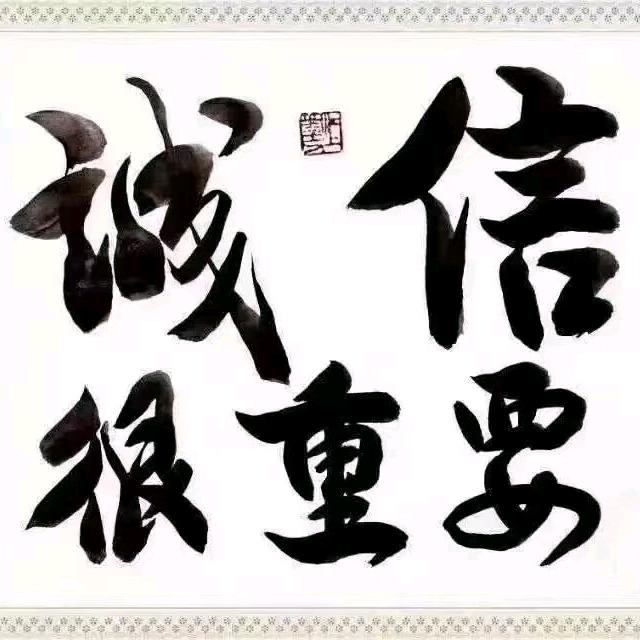 诚信
很重要